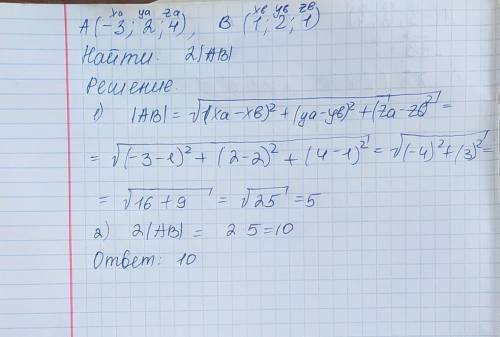 xa ya za xв yв zв
A(-3; 2; 4), B (1; 2; 1)
Найти: 2|AB|
Решение.
1) |AB| = √((xa-xв)² + (ya-yв)² + (za-zв)²) =
= √((-3-1)² + (2-2)² + (4-1)²) = √((-4)² + (3)²) =
= √(16+9) = √25 = 5
2) 2|AB| = 2 5 = 10
Ответ: 10